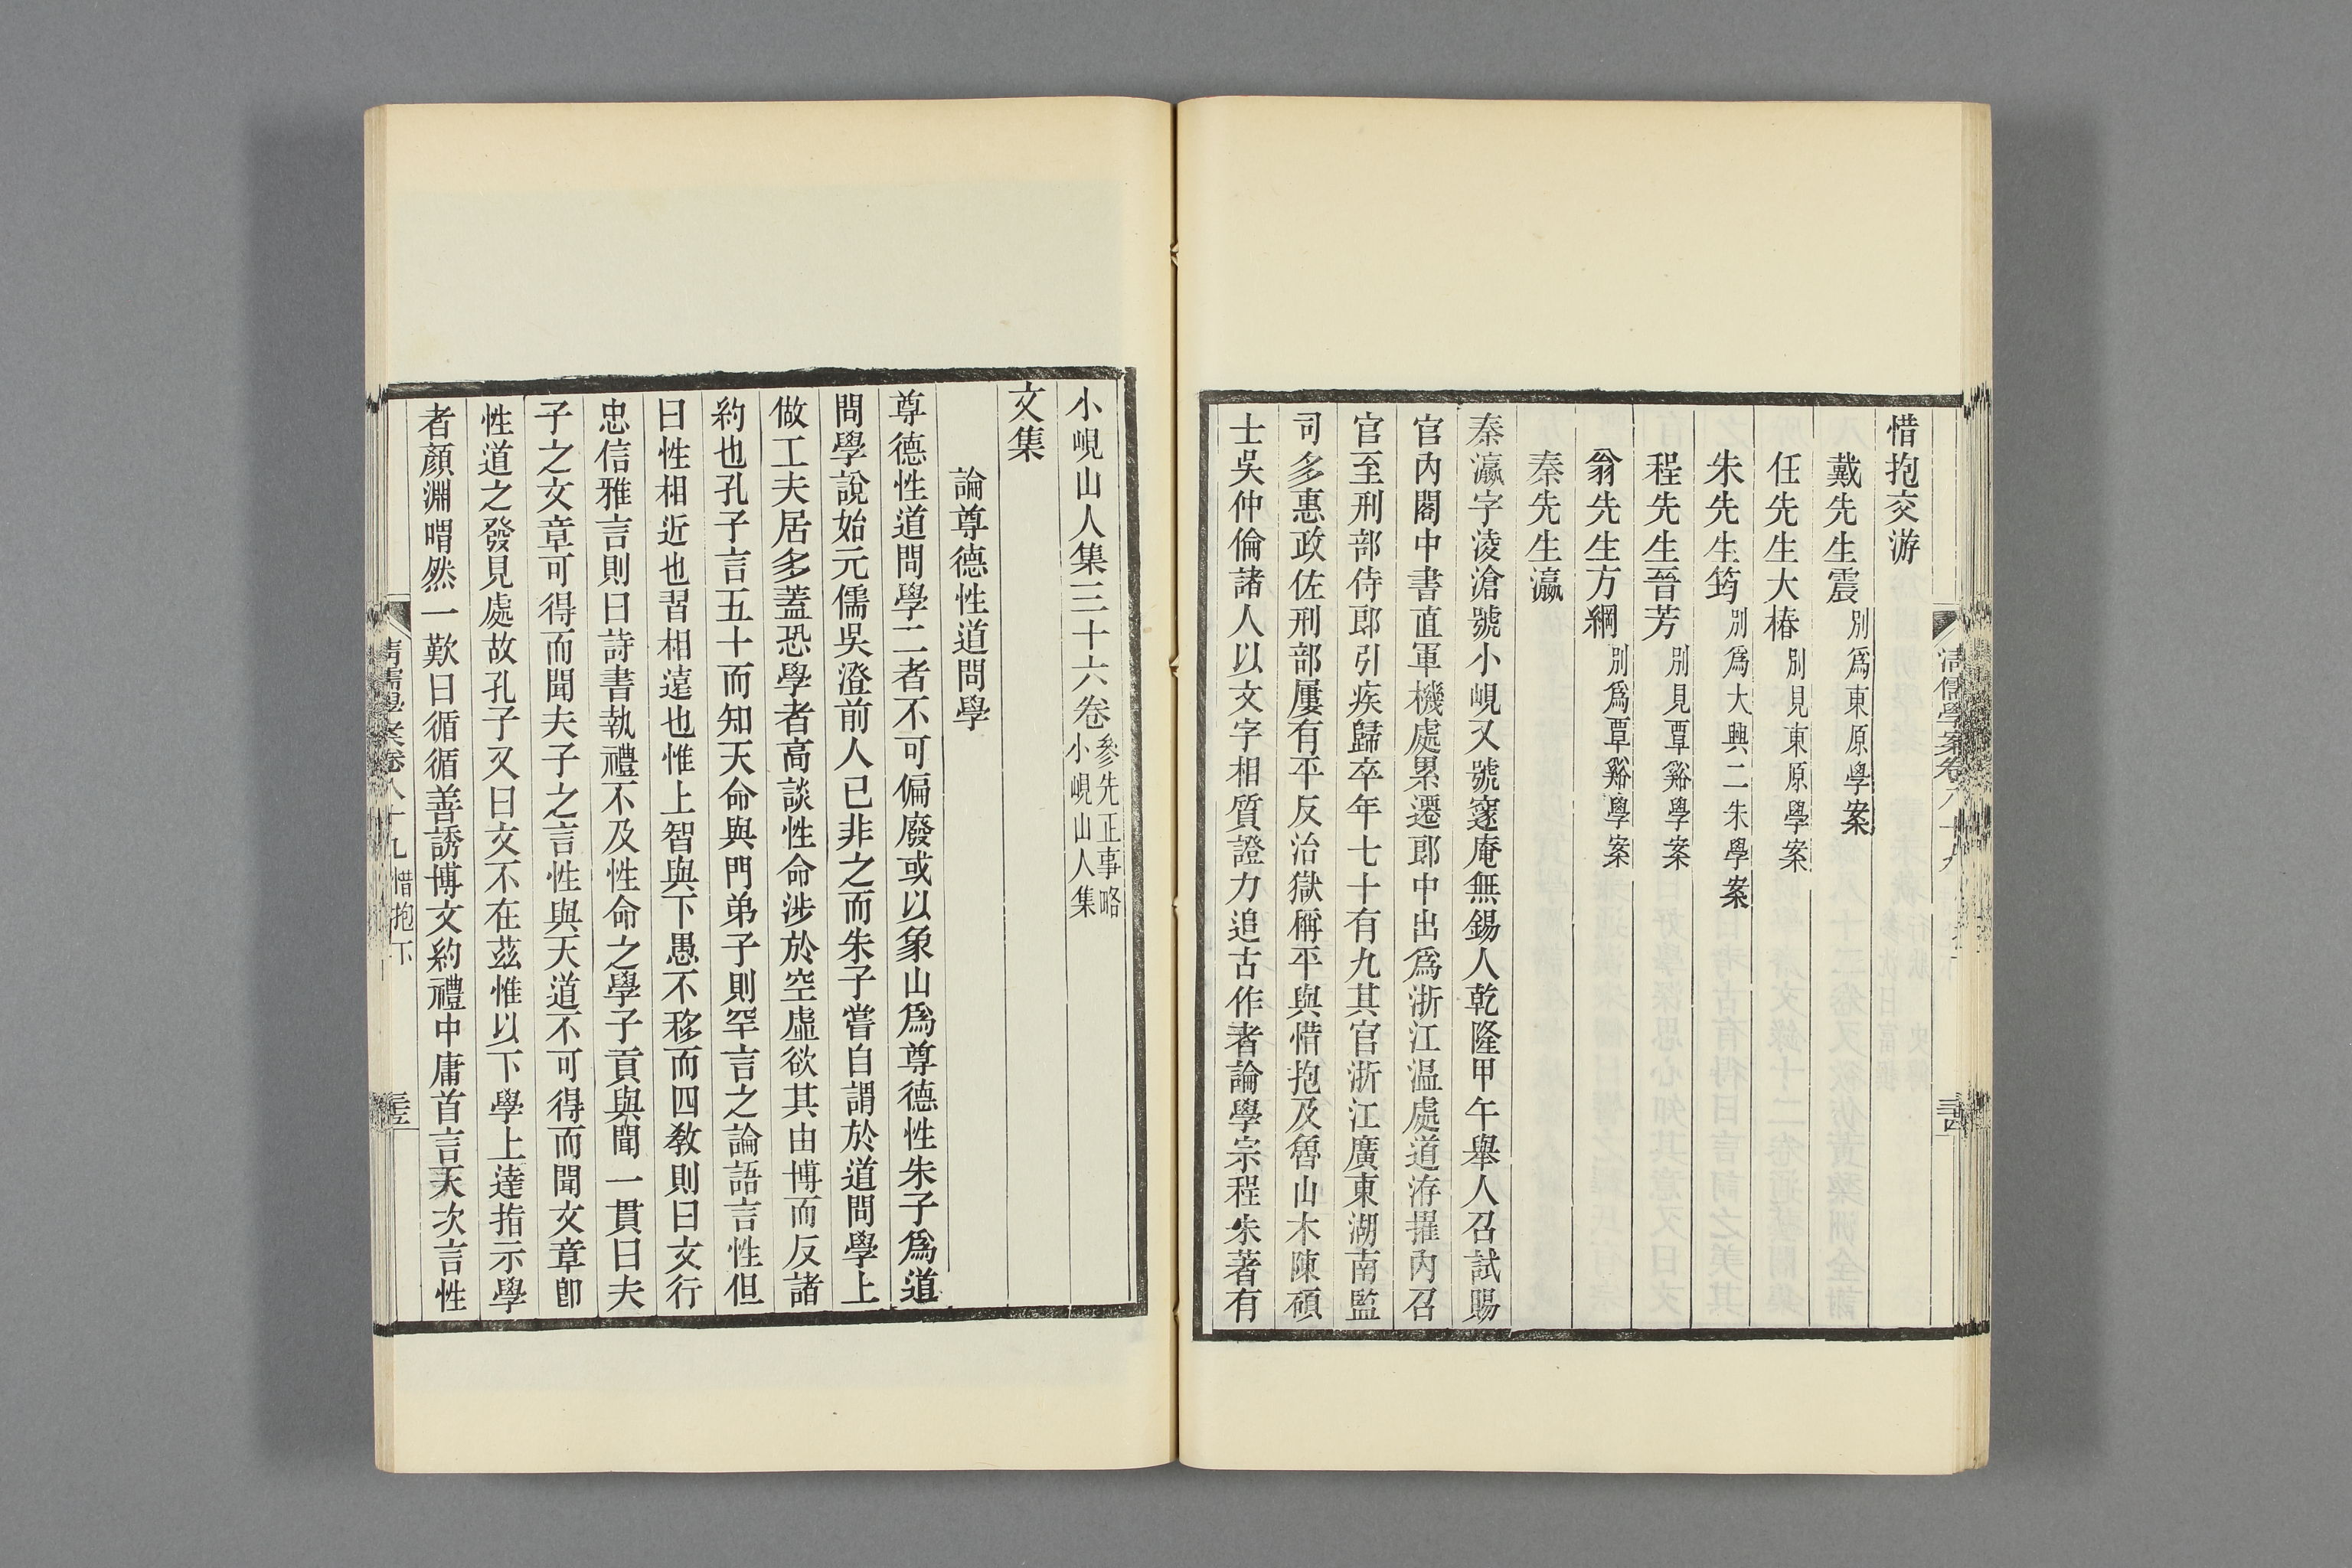 惜抱交游
戴先生震別爲東原學案
任先生大椿別見東原學案
朱先生筠別爲大興二朱學案
程先生晉芳別見覃谿學案
翁先生方綱別爲覃谿學案
秦先生瀛
秦瀛字淩滄號小峴又號邃庵無錫人乾隆甲午舉人召試賜
官內閣中書直軍機處累遷郎中出爲浙江温處道洊擢內召
官至刑部侍郎引疾歸卒年七十有九其官浙江廣東湖南監
司多惠政佐刑部屢有平反治獄稱平與惜抱及魯山木陳碩
士吳仲倫諸人以文字相質證力追古作者論學宗程朱著有
清儒學案卷八十九
小峴山人集三十六卷參先正事略
小峴山人集
文集
論尊德性道問學
尊德性道問學二者不可偏廢或以象山爲尊德性朱子爲道
問學說始元儒吳澄前人已非之而朱子嘗自謂於道問學上
做工夫居多蓋恐學者高談性命涉於空虛欲其由博而反諸
約也孔子言五十而知天命與門弟子則罕言之論語言性但
曰性相近也習相遠也惟上智與下愚不移而四敎則曰文行
忠信雅言則曰詩書執禮不及性命之學子貢與聞一貫曰夫
子之文章可得而聞夫子之言性與天道不可得而聞文章卽
性道之發見處故孔子又曰文不在茲惟以下學上達指示學
者顏淵喟然一歎曰循循善誘博文約禮中庸首言天次言性
清儒學案卷八十九惜抱下